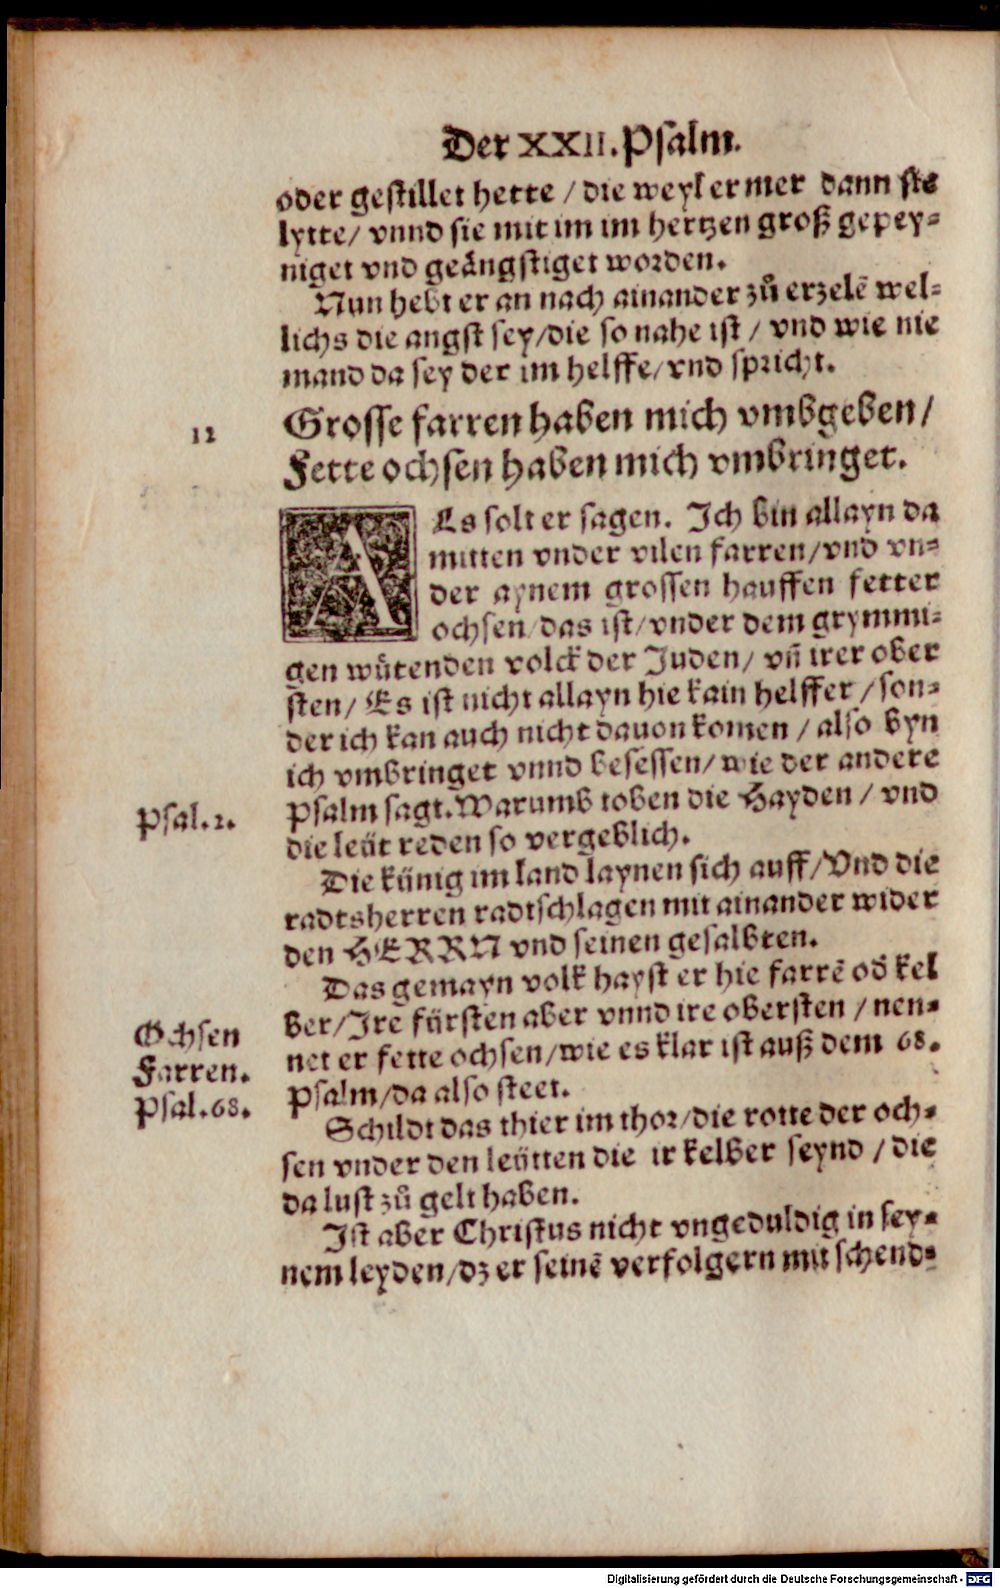 Der XXII. Psalm.
oder gestillet hette / die weyl er mer dann sie
lytte/ vnnd sie mit im im hertzen groß gepey-
niget vnd geängstiget worden.
Nun hebt er an nach ainander zů erzelē wel-
lichs die angst sey/die so nahe ist / vnd wie nie
mand da sey der im helffe/vnd spricht.
12
Grosse farren haben mich vmbgeben/
Fette ochsen haben mich vmbringet.
AEs solt er sagen. Ich bin allayn da
mitten vnder vilen farren/vnd vn-
der aynem grossen hauffen fetter
ochsen/das ist/vnder dem grymmi-
gen wůtenden volck der Juden/ vñ irer ober
sten/ Es ist nicht allayn hie kain helffer / son-
der ich kan auch nicht dauon komen / also byn
ich vmbringet vnnd besessen/ wie der andere
Psal.2.
Psalm sagt. Warumb toben die Hayden / vnd
die leüt reden so vergeblich.
Die künig im land laynen sich auff/Vnd die
radtsherren radtschlagen mit ainander wider
den HERRN vnd seinen gesalbten.
Das gemayn volk hayst er hie farrē oď kel
Ochsen
ber/Jre fürsten aber vnnd ire obersten / nen-
Farren.
net er fette ochsen/wie es klar ist auß dem 68.
Psal.68.
Psalm/da also steet.
Schildt das thier im thor/die rotte der och-
sen vnder den leütten die ir kelber seynd / die
da lust zů gelt haben.
Ist aber Christus nicht vngeduldig in sey-
nem leyden/dz er seinē verfolgern mit schend-
Digitalisierung gefördert durch die Deutsche Forschungsgemeinschaft - DFG